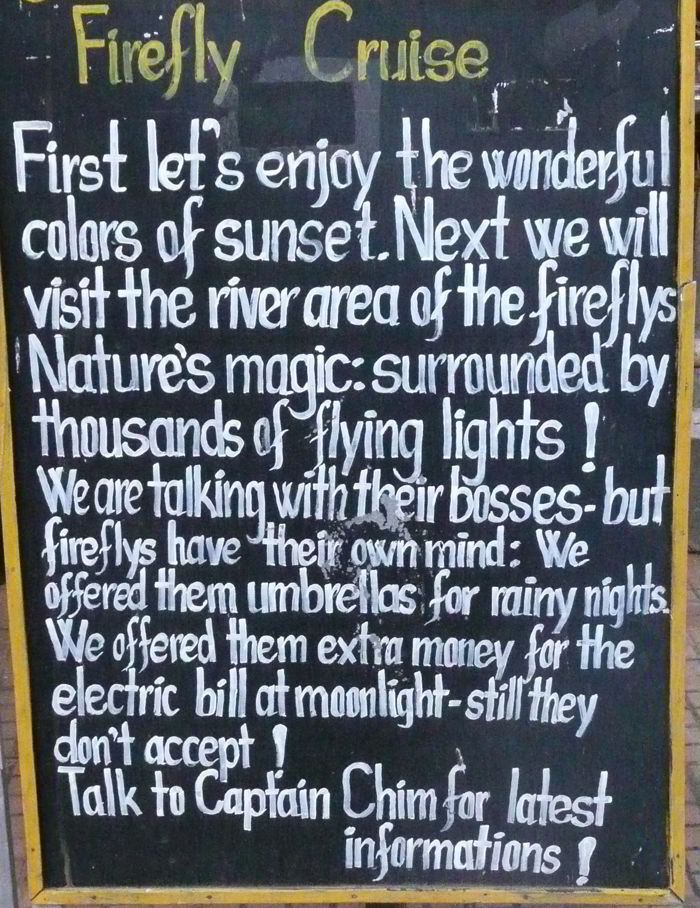 Firefly Cruise
First let's enjoy the wonderful
colors of sunset. Next we will
visit the river area of the fireflys
Nature's magic: surrounded by
thousands of flying lights !
We are talking with their bosses - but
fireflys have their own mind: We
offered them umbrellas for rainy nights.
We offered them extra money for the
electric bill at moonlight - still they
don't accept !
Talk to Captain Chim for latest
informations !